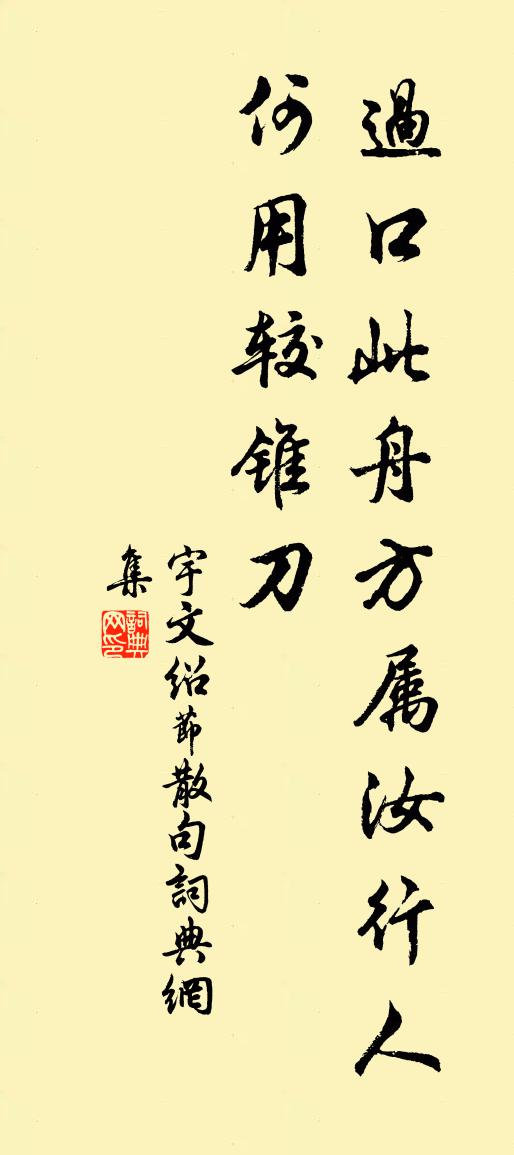 過口此舟方属汝行人
何用较錐刀
宇文绍節散句詞典網
集
詞典
网印